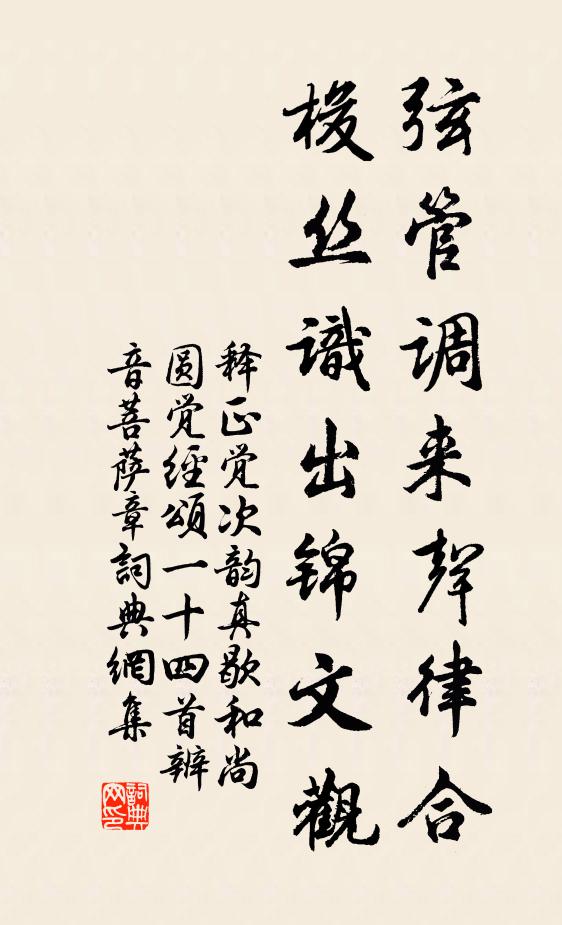 弦管调来聲律合
梭丝識出锦文觀
释正觉次韵真歇和尚
圆觉經頌一十四首辨
音菩萨章詞典網集
詞典网印